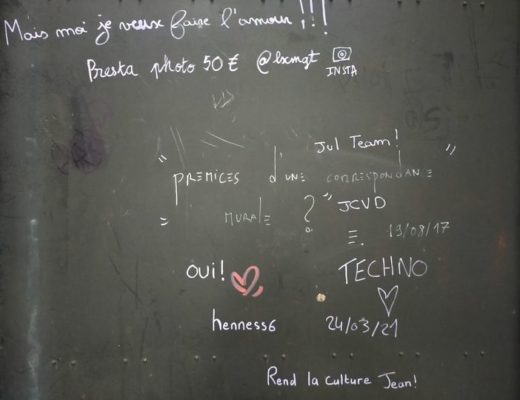 Mais moi je veux faire l'amour !!!
Presta photo 50 € @lxmgt
INSTA
Jul Team!
" PREMICES d'UNE CORRESPONDANCE "
" MURALE ? "
JCVD
E. 19/08/17
OUI!
TECHNO
henness6
24/03/21
Rend la culture Jean!